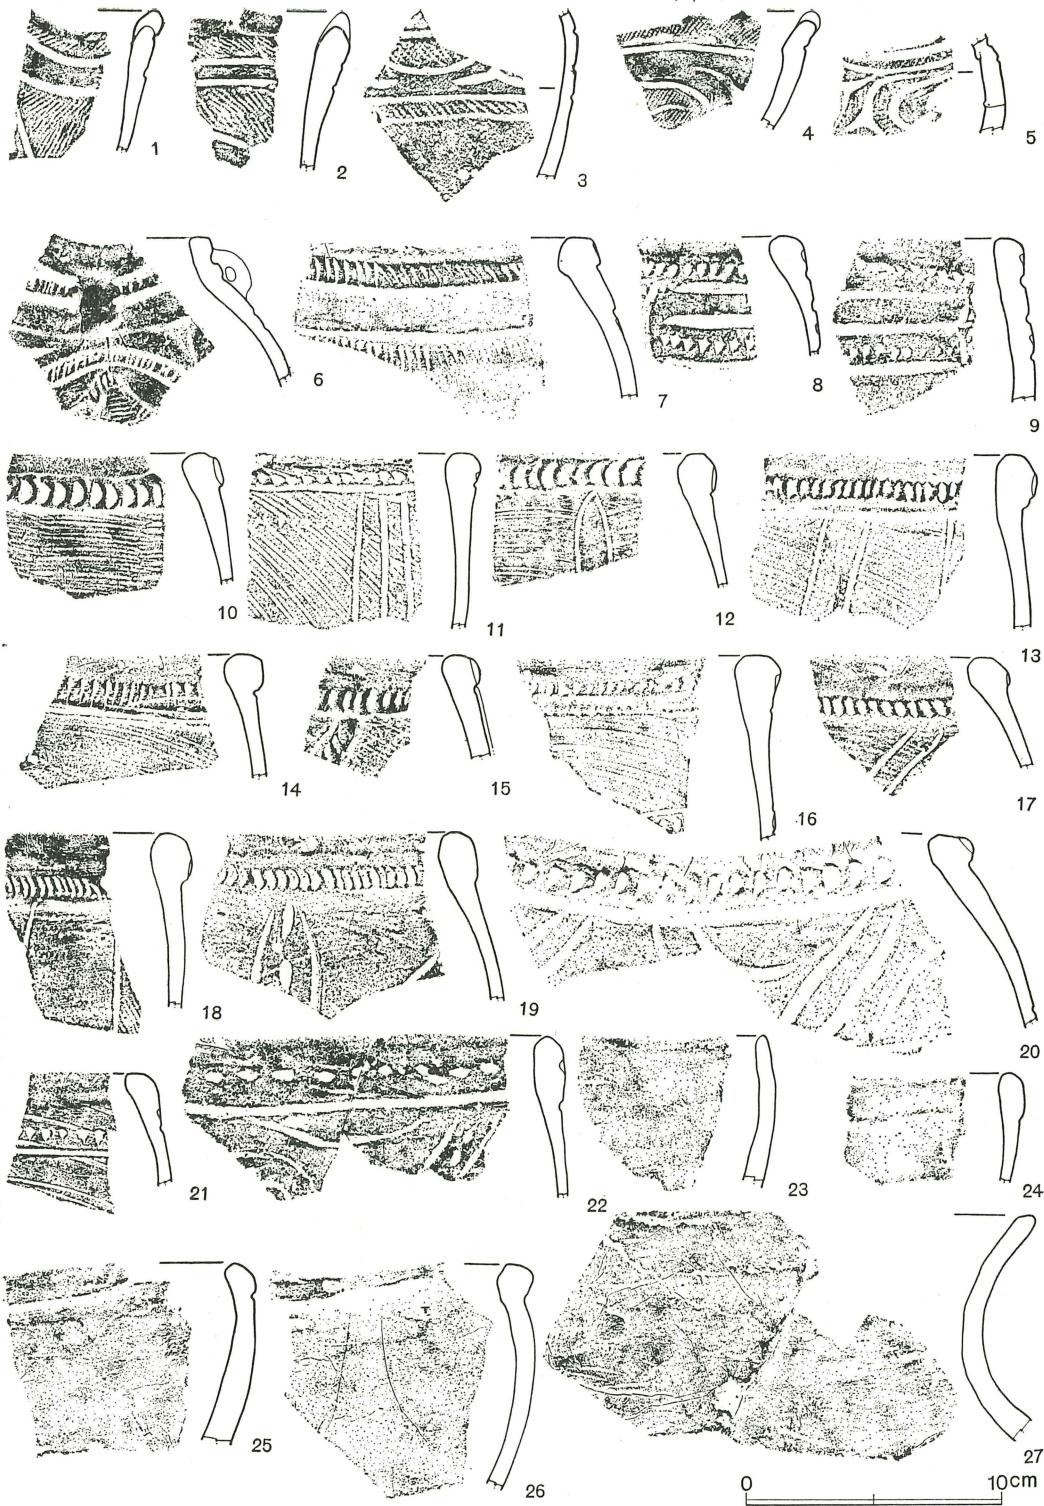 1 2 3 4 5
6 7 8 9
10 11 12 13
14 15 16 17
18 19 20
21 22 23 24
25 26 27
0 10cm